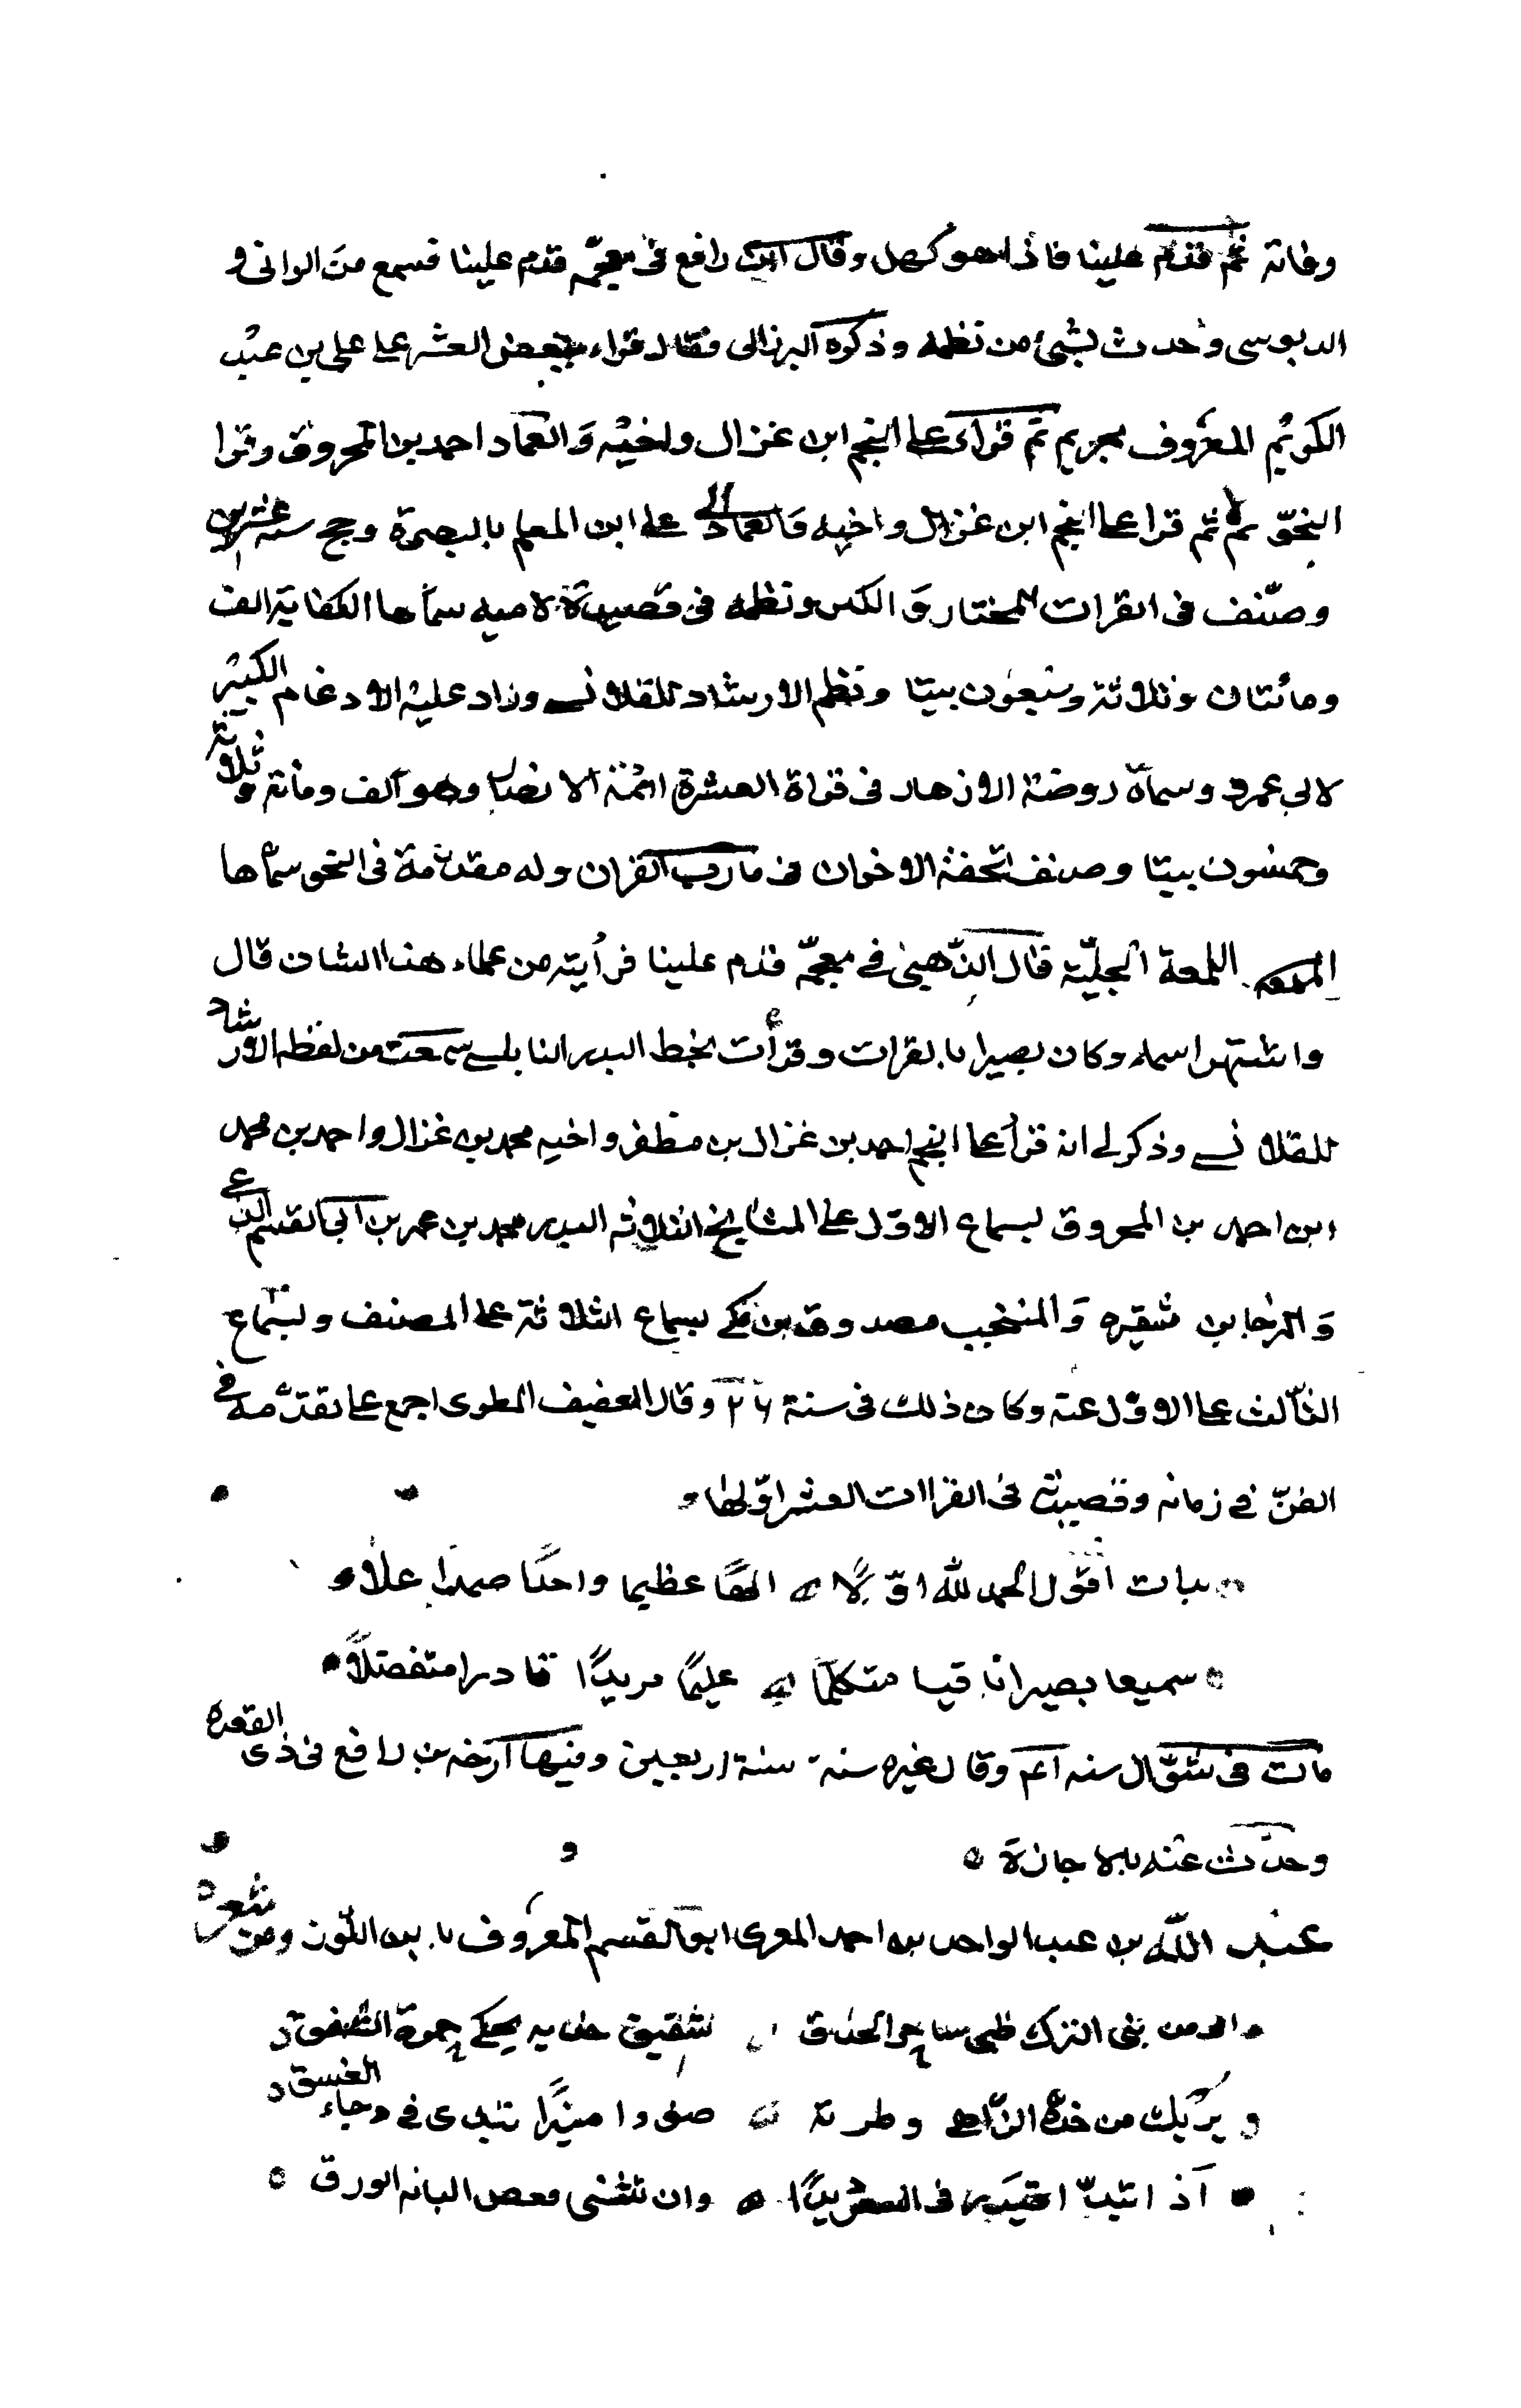 وفاته ثم قدم علينا فاذا هو كهل وقال ابن رافع فى معجمه قدم علينا فسمع من الوانى و
الدبوسى وحدث بشئ من نظمه وذكره البرزالى فقال قراء ببعض العشر على على بن عبد
الكريم المعروف بمجريم ثم قراء على النجم ابن غزال واخيه والعماد احمد بن المحروق وقرا
النحو ثم قرا على النجم ابن غزال واخيه والعماد على ابن المعلم بالبصرة وحج سنة عشرين
وصنف فى القرات المختار و الكنز ونظمه فى قصيدة لاميه سماها الكفاية الف
ومائتان وثلاثة وسبعون بيتا ونظم الارشاد للقلانسى وزاد عليه الادغام الكبير
لابى عمرو وسماه روضة الازهار فى قراة العشرة ائمة الانصار وهو الف ومائة وثلاثة
وخمسون بيتا وصنف تحفة الاخوان فى مارب القران وله مقدمة فى النحو سماها
اللمعة الجلية قال الذهبى فى معجمه قدم علينا فرأيته من علماء هذا الشان قال
واشتهر اسمه وكان بصيرا بالقرات وقرأت بخط البدر النابلسى سمعت من لفظه الارشاد
للقلانسى وذكر لى انه قرأ على النجم احمد بن غزال بن مظفر واخيه محمد بن غزال واحمد بن محمد
ابن احمد بن المحروق بسماع الاول على المشايخ الثلاثه البدر محمد بن عمر بن ابى القسم الداعى
و المرجا بن شقيره و المنتجب مصدوق بن مكى بسماع الثلاثة على المصنف وبسماع
الثالث على الاول عنه وكان ذلك فى سنة ٢٦ وقال العفيف المطرى اجمع على تقدمه فى
الفن فى زمانه وقصيدته فى القراات العشر اولها
بدات اقول الحمد لله اولا الها عظيما واحدا صمدا علا
سميعا بصيرا باقيا متكلما عليما مريدا قادرا متفضلا
مات فى شوال سنه وقال غيره سنة سنة اربعين وفيها ارخه بن رافع فى ذى القعده
وحدث عنه بالاجازة
عبد الله بن عبد الواحد بن احمد المعرى ابو القسم المعروف بابن اللوز ومن شعره
من بنى الترك ظبى ساحر الحدق شقيق خديه يحكى حمرة الشفق
و يريك من خده الزاهى وطرته ضوءا منيرا تبدى فى دجاء الغسق
وان تثنى فغصن البانه الورق